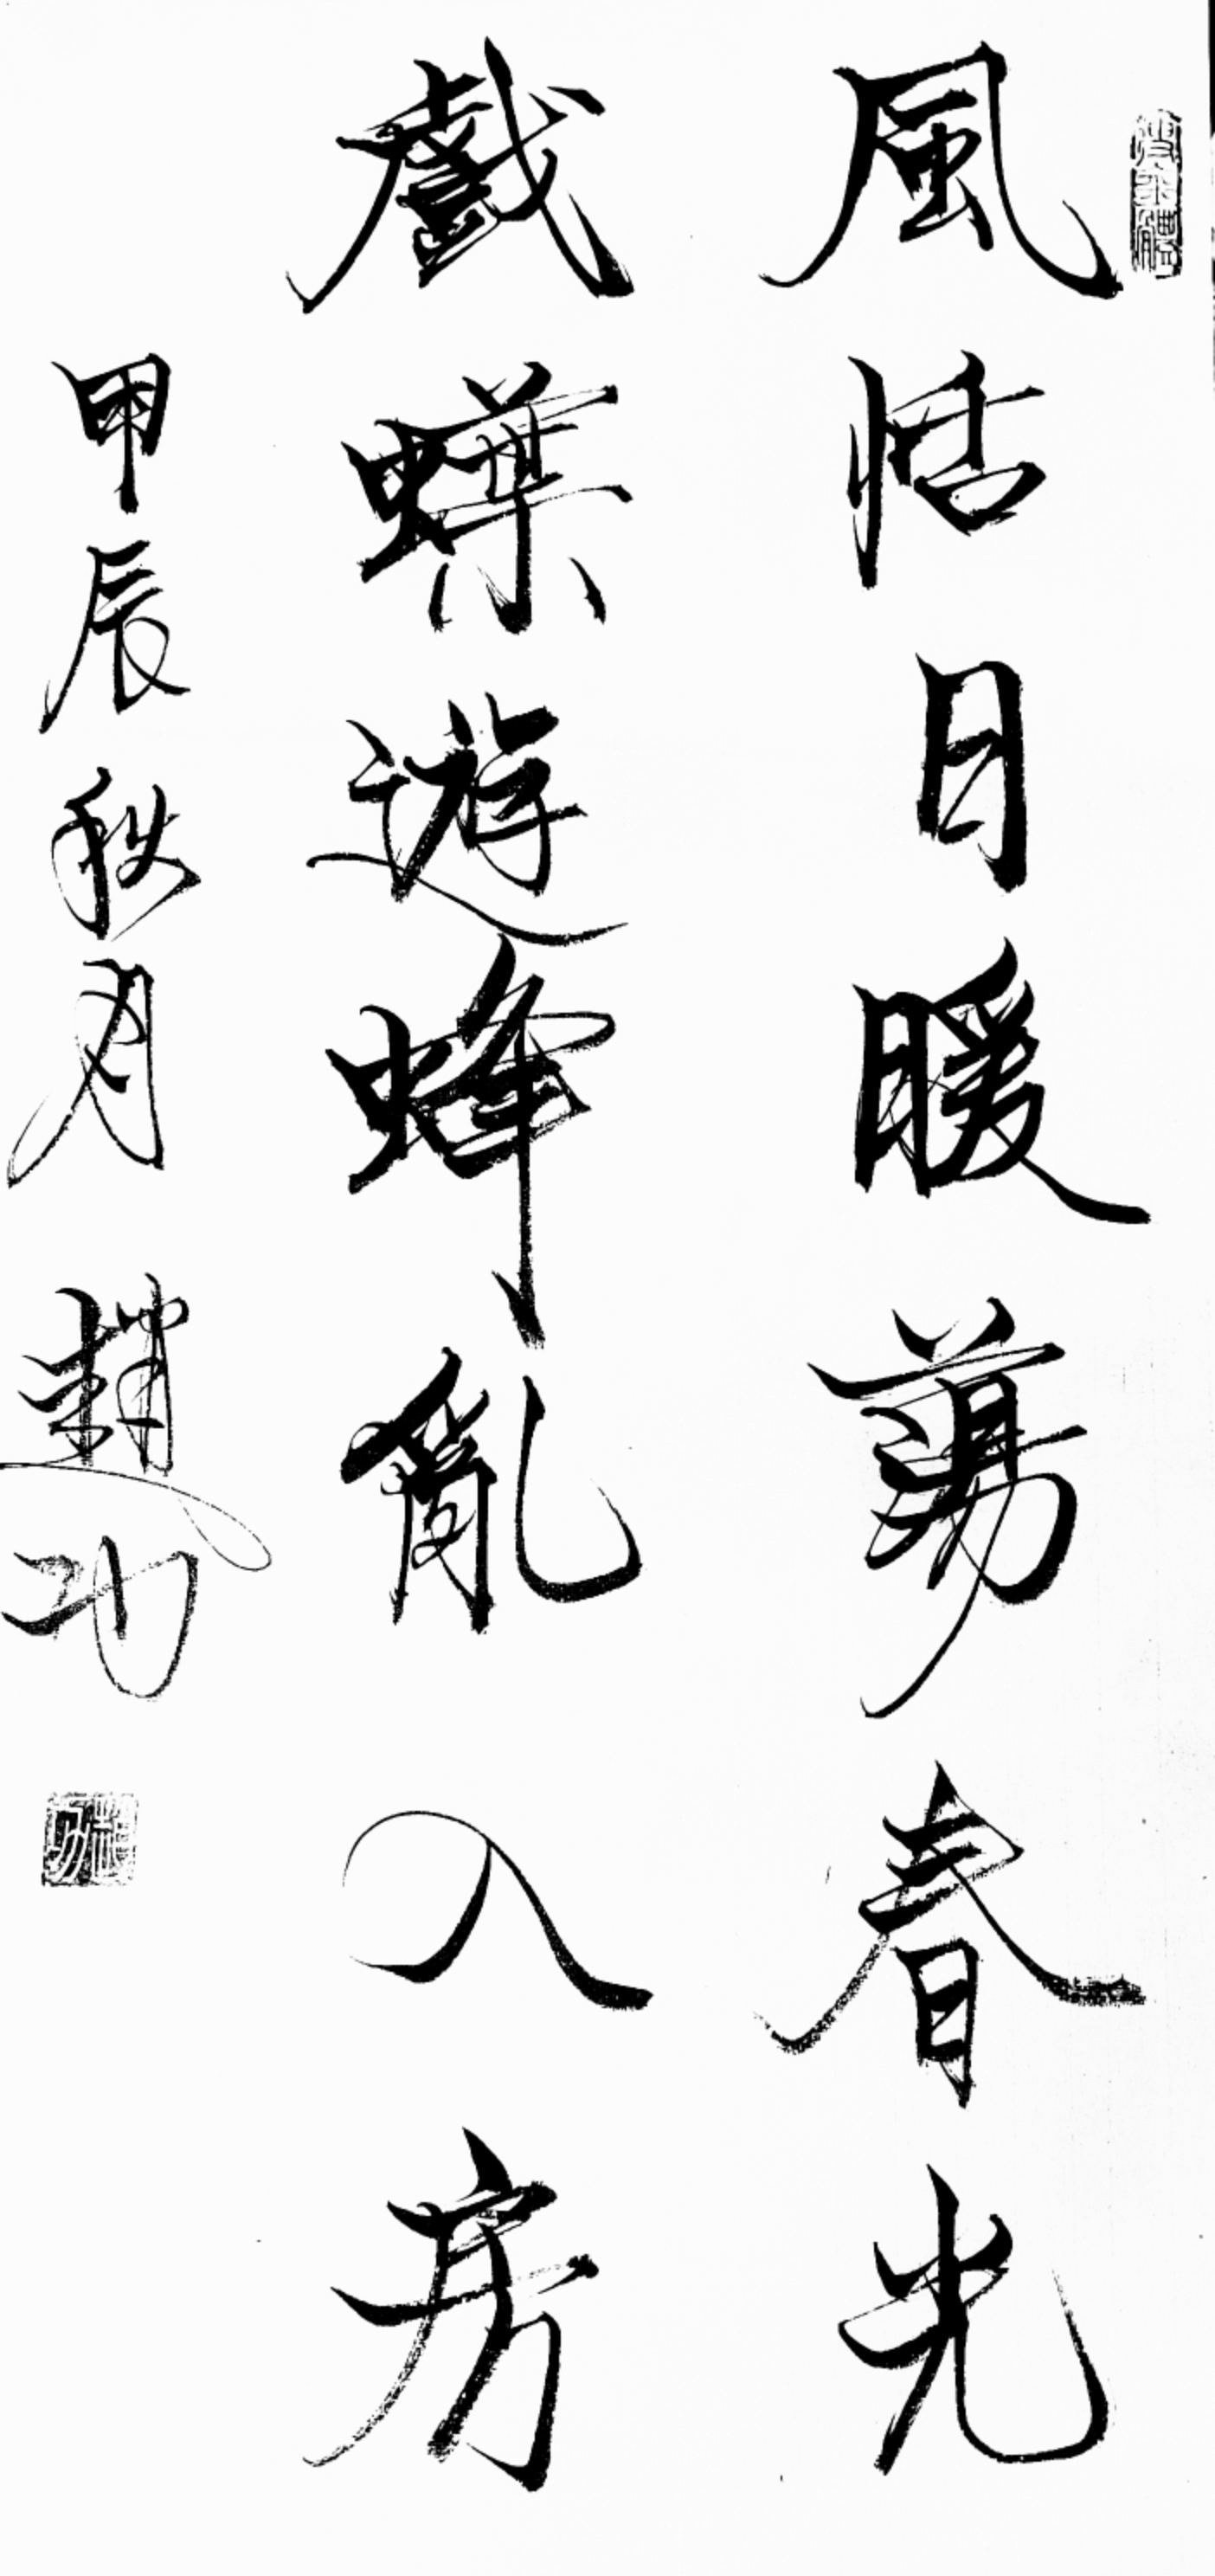 風恬日暖蕩春光
戲蝶遊蜂亂入房
甲辰秋月 趙功